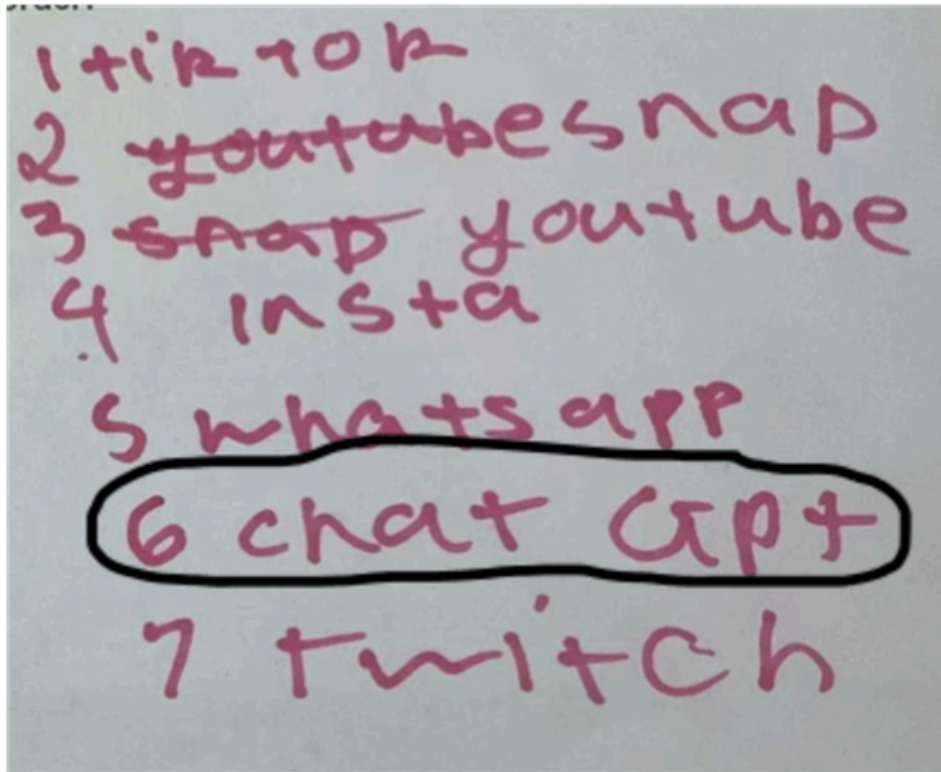 1 tik tok
2 youtube snap
3 snap youtube
4 insta
5 whatsapp
6 chat Gpt
7 twitch